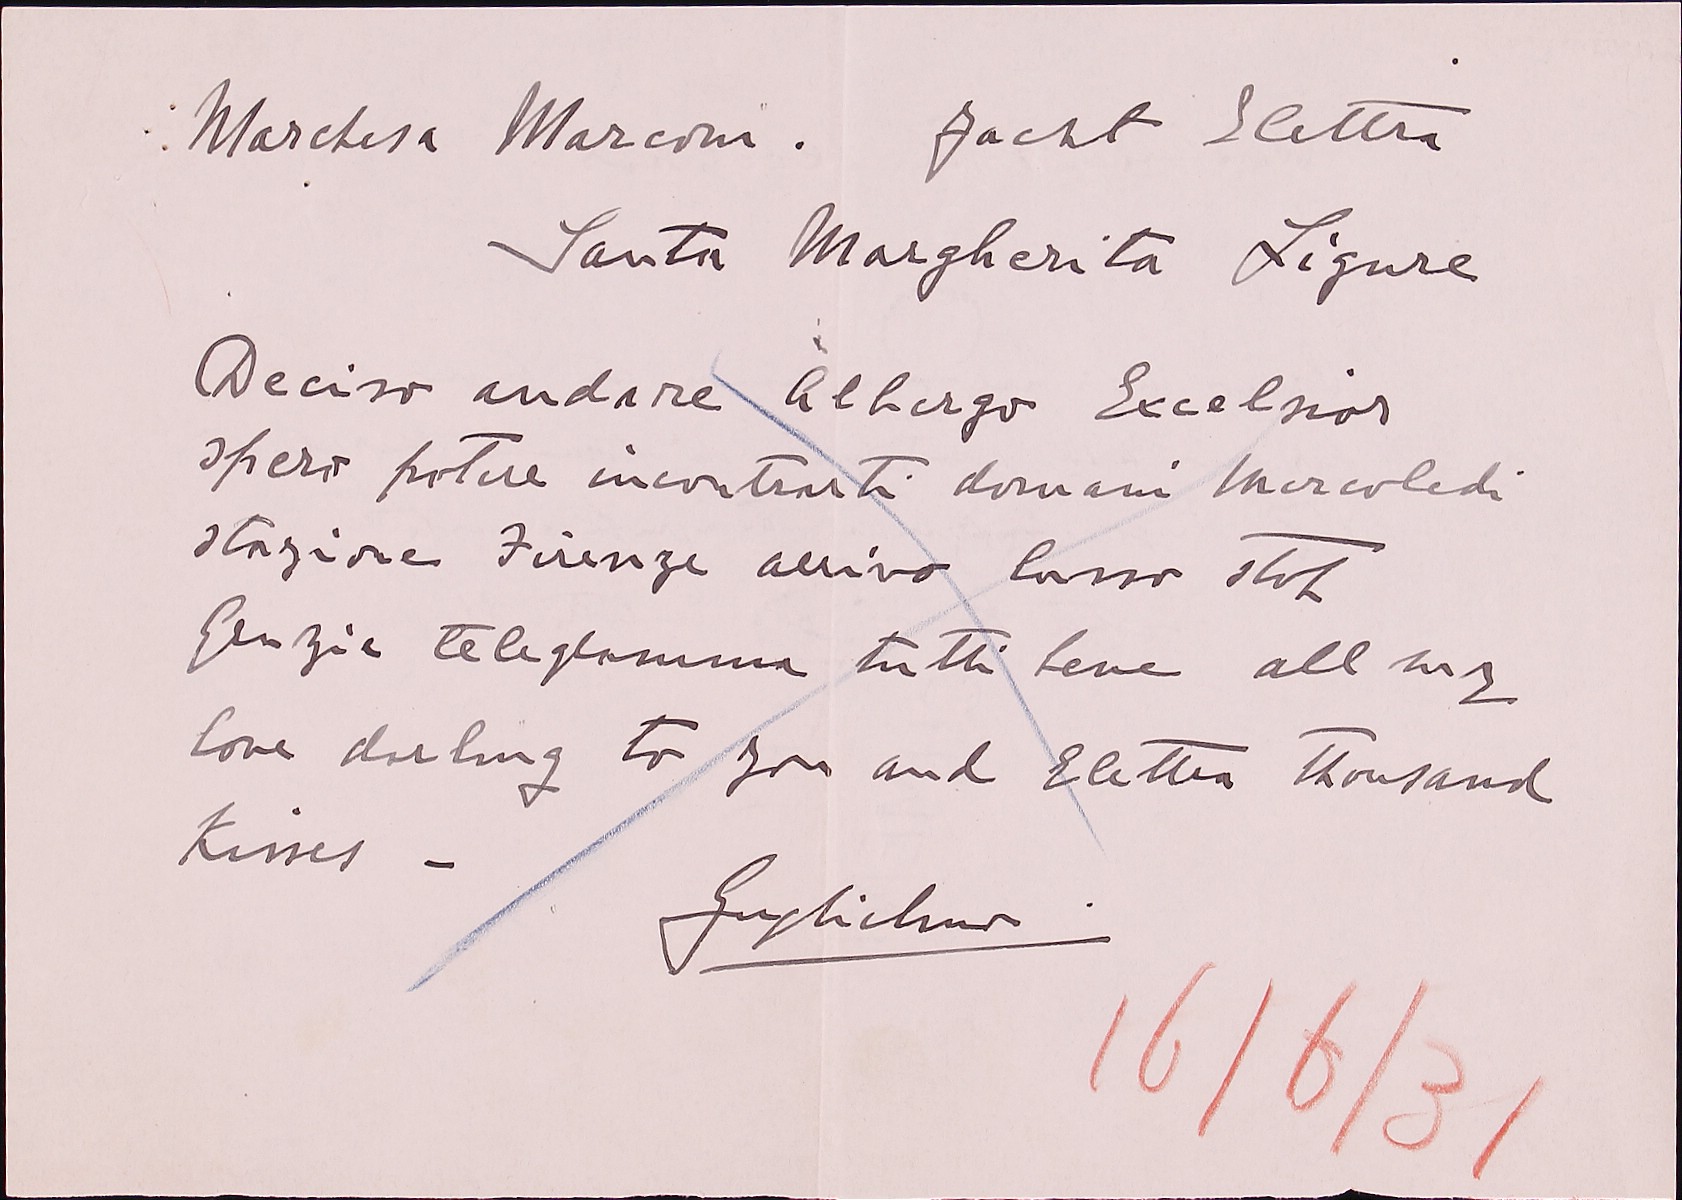 Marchesa Marconi. Yacht Elettra
Santa Margherita Ligure
Deciso andare Albergo Excelsior
spero potere incontrarti domani Mercoledi
stazione Firenze arrivo lusso stop
Grazie telegramma tutti bene all my
love darling to you and Elettra thousand
Kisses -
Guglielmo.
16/6/31